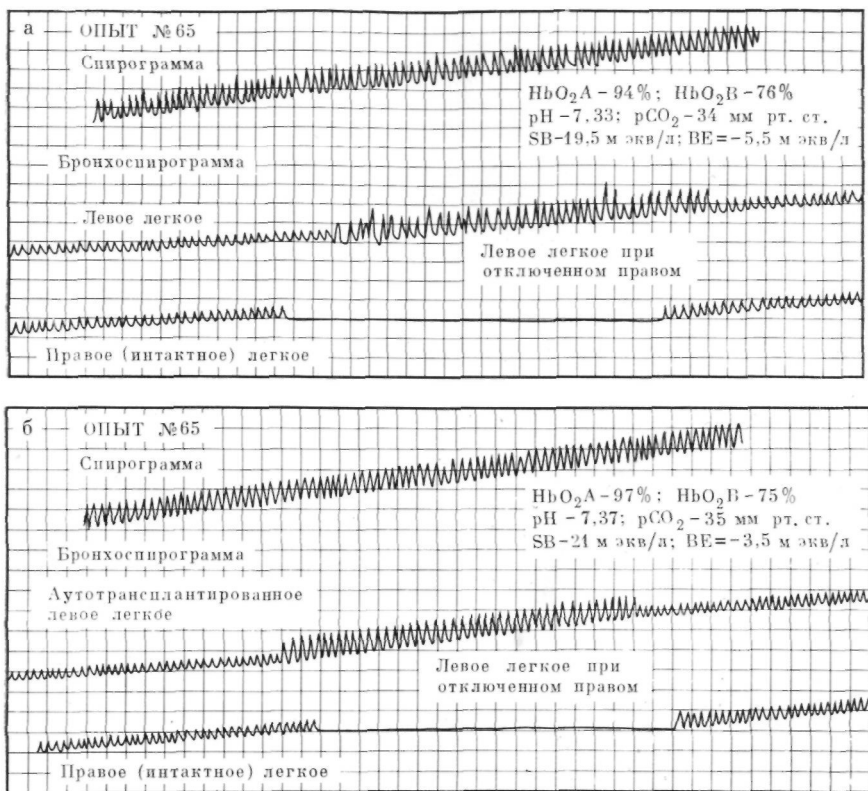 а ОПЫТ №65
Спирограмма
HbO₂A–94%; HbO₂B–76%
pH–7,33; pCO₂–34 мм рт. ст.
SB–19,5 м экв/л; BE=–5,5 м экв/л
Бронхоспирограмма
Левое легкое
Левое легкое при
отключенном правом
Правое (интактное) легкое
б ОПЫТ №65
Спирограмма
HbO₂A–97%; HbO₂B–75%
pH–7,37; pCO₂–35 мм рт. ст.
SB–21 м экв/л; BE=–3,5 м экв/л
Бронхоспирограмма
Аутотрансплантированное
левое легкое
Левое легкое при
отключенном правом
Правое (интактное) легкое